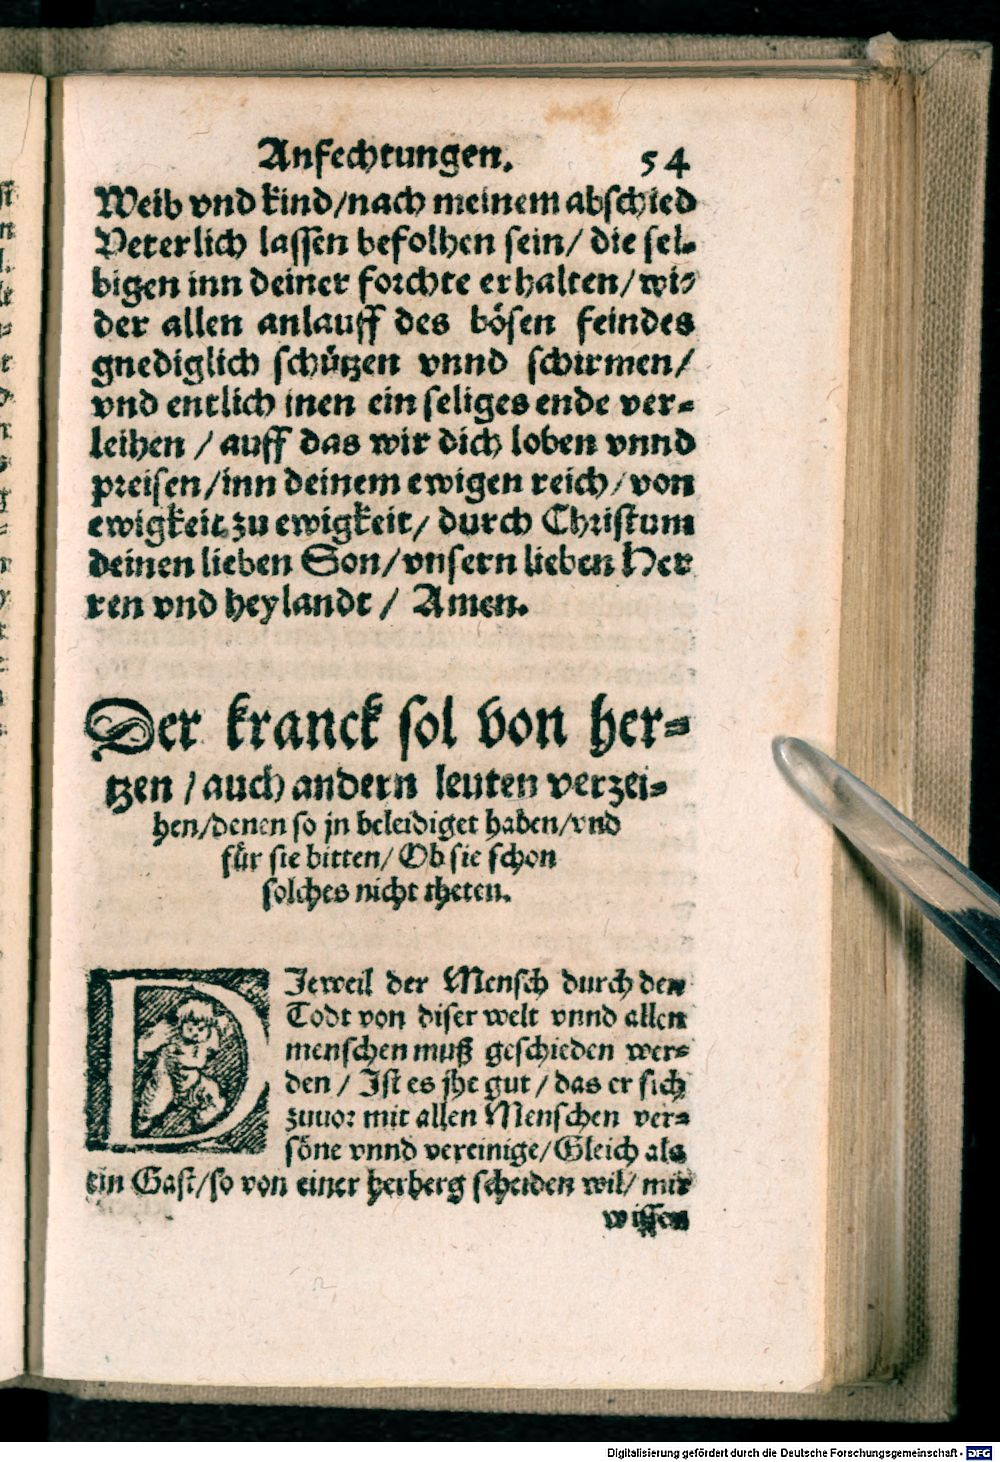 Anfechtungen. 54
Weib vnd kind/nach meinem abschied
Veterlich lassen befolhen sein/ die sel-
bigen inn deiner forchte erhalten/wi-
der allen anlauff des bösen feindes
gnediglich schützen vnnd schirmen/
vnd entlich inen ein seliges ende ver-
leihen / auff das wir dich loben vnnd
preisen/inn deinem ewigen reich/von
ewigkeit zu ewigkeit/ durch Christum
deinen lieben Son/vnsern lieben Her
ren vnd heylandt / Amen.
Der kranck sol von her-
tzen / auch andern leuten verzei-
hen/denen so jn beleidiget haben/vnd
für sie bitten/ Ob sie schon
solches nicht theten.
DJeweil der Mensch durch den
Todt von diser welt vnnd allen
menschen muß geschieden wer-
den / Ist es jhe gut / das er sich
zuuor mit allen Menschen ver-
söne vnnd vereinige/Gleich als
ein Gast/so von einer herberg scheiden wil/ mit
wissen
Digitalisierung gefördert durch die Deutsche Forschungsgemeinschaft - DFG